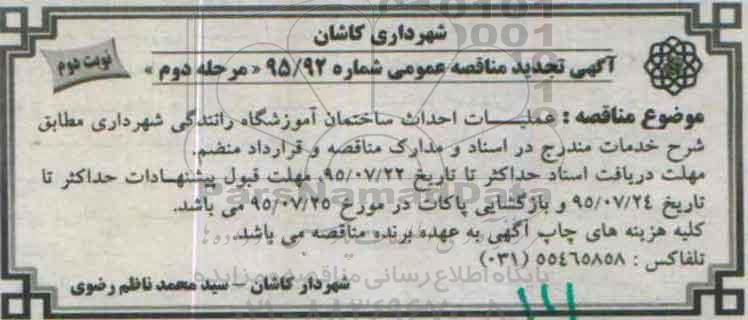 شهرداری کاشان
آگهی تجدید مناقصه عمومی شماره ۹۵/۹۲ «مرحله دوم»
نوبت دوم
موضوع مناقصه : عملیـــات احداث ساختمان آموزشگاه رانندگی شهرداری مطابق
شرح خدمات مندرج در اسناد و مدارک مناقصه و قرارداد منضم.
مهلت دریافت اسناد حداکثر تا تاریخ ۹۵/۰۷/۲۲، مهلت قبول پیشنهـادات حداکثر تا
تاریخ ۹۵/۰۷/۲۴ و بازگشایی پاکات در مورخ ۹۵/۰۷/۲۵ می باشد.
کلیه هزینه های چاپ آگهی به عهده برنده مناقصه می باشد.
تلفاکس : ۵۵۴۶۵۸۵۸ (۰۳۱)
شهردار کاشان – سید محمد ناظم رضوی
ParsNamadData
پایگاه اطلاع رسانی مناقصه و مزایده